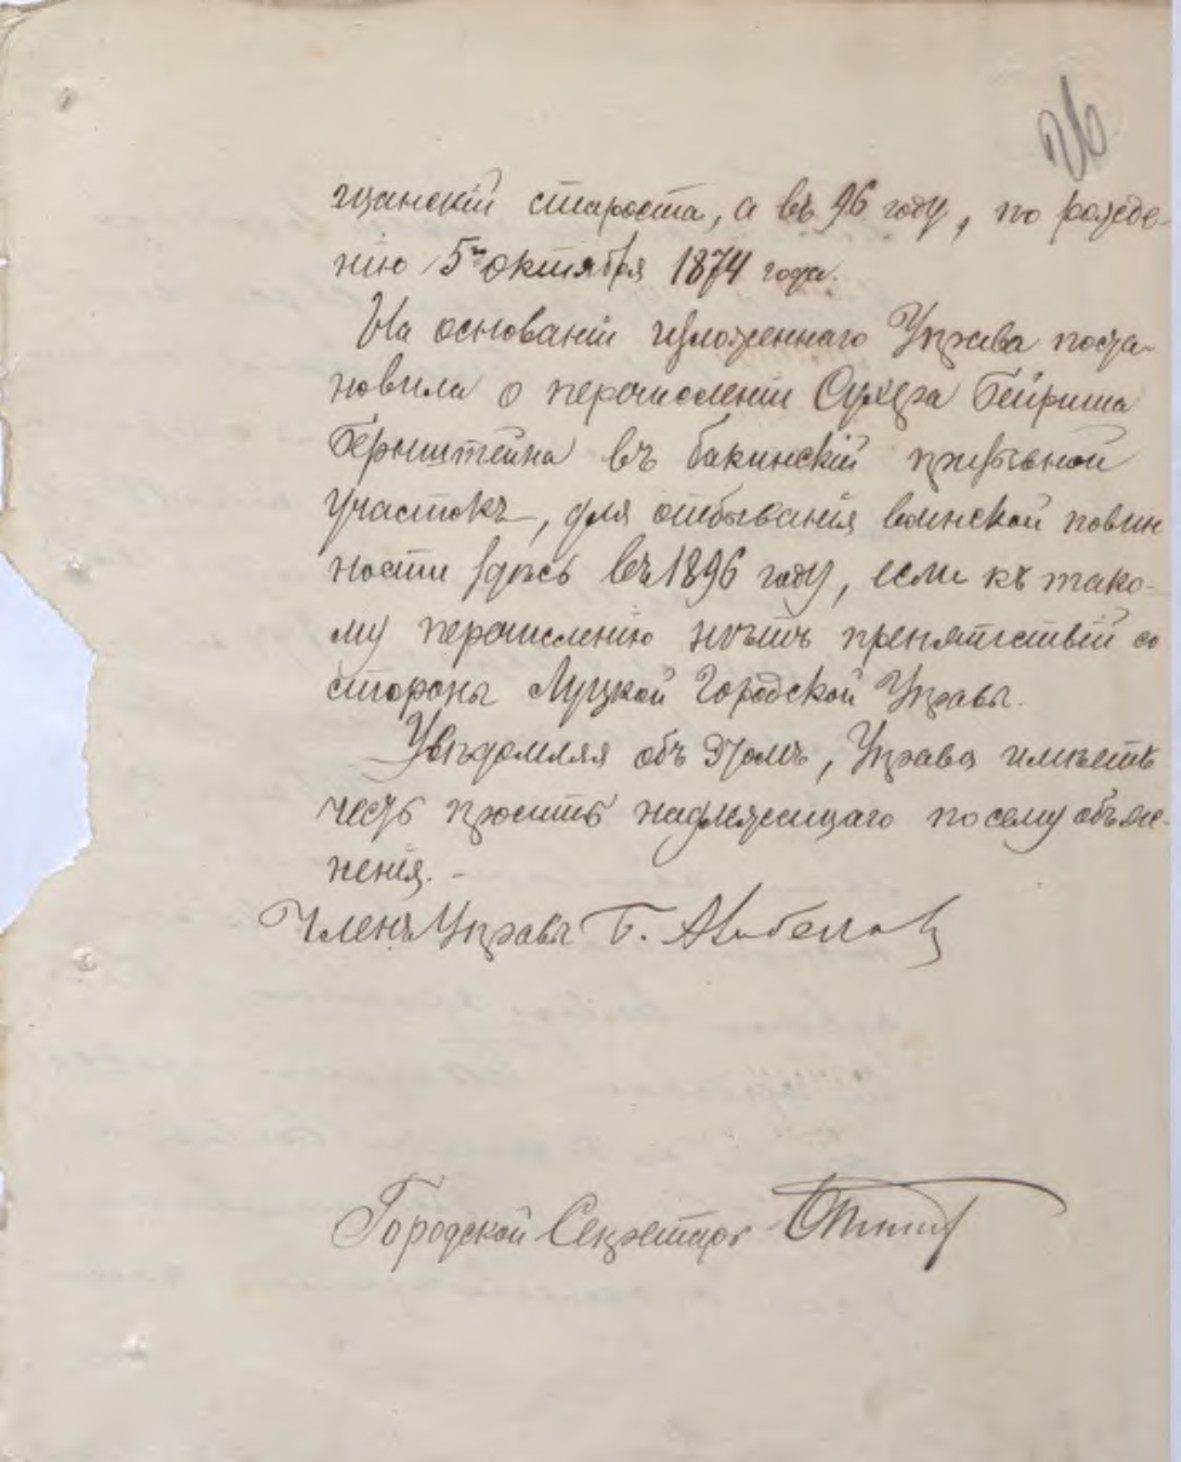 26
щанскій староста, а въ 96 году, по рожде-
нію 5го октября 1874 года.
На основаніи изложеннаго Управа поста-
новила о перечисленіи Сухера Бейриша
Бернштейна въ бакинскій призывной
участокъ, для отбыванія воинской повин
ности здѣсь въ 1896 году, если къ тако-
му перечисленію нѣтъ препятствій со
стороны Луцкой Городской Управы.
Увѣдомляя объ этомъ, Управа имѣетъ
честь просить надлежащаго по сему объяс-
ненія. -
Членъ Управы Б.
Городской Секретарь